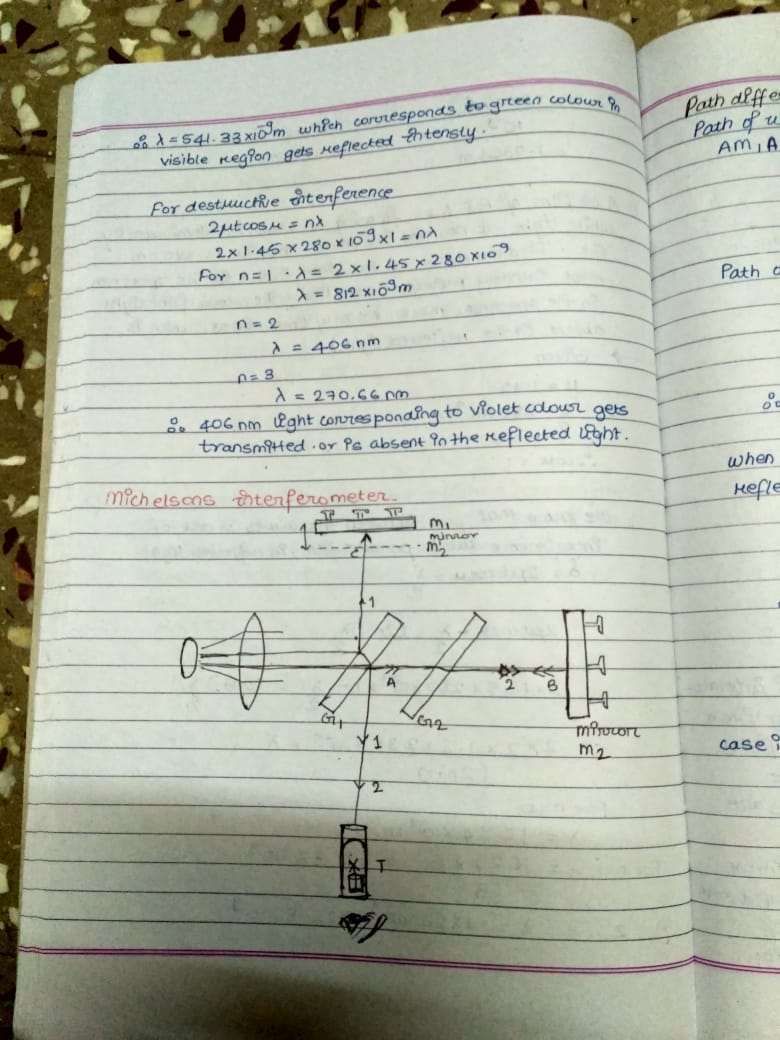 ∴ λ = 541.33×10⁻⁹m which corresponds to green colour in
visible region gets reflected intensly.
For destructive interference
2μtcosr = nλ
2×1.45×280×10⁻⁹×1 = nλ
For n=1 · λ = 2×1.45×280×10⁻⁹
λ = 812×10⁻⁹m
n = 2
λ = 406nm
n = 3
λ = 270.66nm
∴ 406nm light corresponding to violet colour gets
transmitted. or is absent in the reflected light.
Michelsons interferometer.
M₁
mirror
M₂'
C
1
A
2
B
G₁
G₂
mirror
M₂
1
2
T
Path diffe
Path of
AM₁A
Path
∴
when
refle
case i